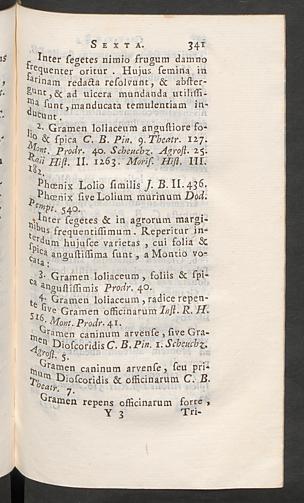 SEXTA. 341
Inter segetes nimio frugum damno
frequenter oritur. Hujus semina in
farinam redacta resolvunt, & abster-
gunt, & ad ulcera mundanda utilissi-
ma sunt, manducata temulentiam in-
ducunt.
2. Gramen loliaceum angustiore fo-
lio & spica C. B. Pin. 9. Theatr. 127.
Mont. Prodr. 40. Scheuchz. Agrost. 25.
Raii Hist. II. 1263. Moris. Hist. III.
182.
Phœnix Lolio similis J. B. II. 436.
Phœnix sive Lolium murinum Dod.
Pempt. 540.
Inter segetes & in agrorum margi-
nibus frequentissimum. Reperitur in-
terdum hujusce varietas, cui folia &
spica angustissima sunt, a Montio vo-
cata:
3. Gramen loliaceum, foliis & spi-
ca angustissimis Prodr. 40.
4. Gramen loliaceum, radice repen-
te sive Gramen officinarum Inst. R. H.
516. Mont. Prodr. 41.
Gramen caninum arvense, sive Gra-
men Dioscoridis C. B. Pin. 1. Scheuchz.
Agrost. 5.
Gramen caninum arvense, seu pri-
mum Dioscoridis & officinarum C. B.
Theatr. 7.
Gramen repens officinarum forte,
Y 3 Tri-